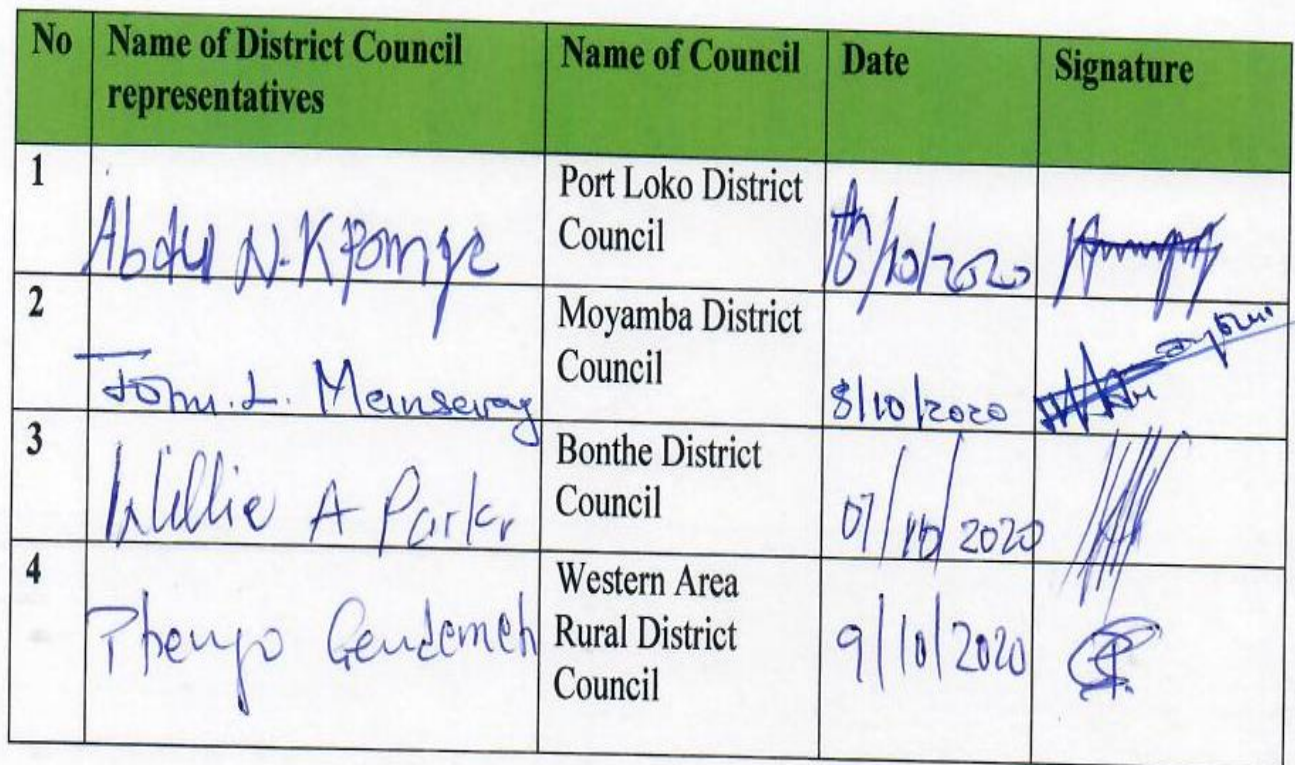 No Name of District Council representatives Name of Council Date Signature
1 Abdul N. Kpomge Port Loko District Council /10/2020
2 John. L. Mansaray Moyamba District Council 8/10/2020
3 Willie A Parkr Bonthe District Council 07/10/2020
4 Phenyo Gendemeh Western Area Rural District Council 9/10/2020